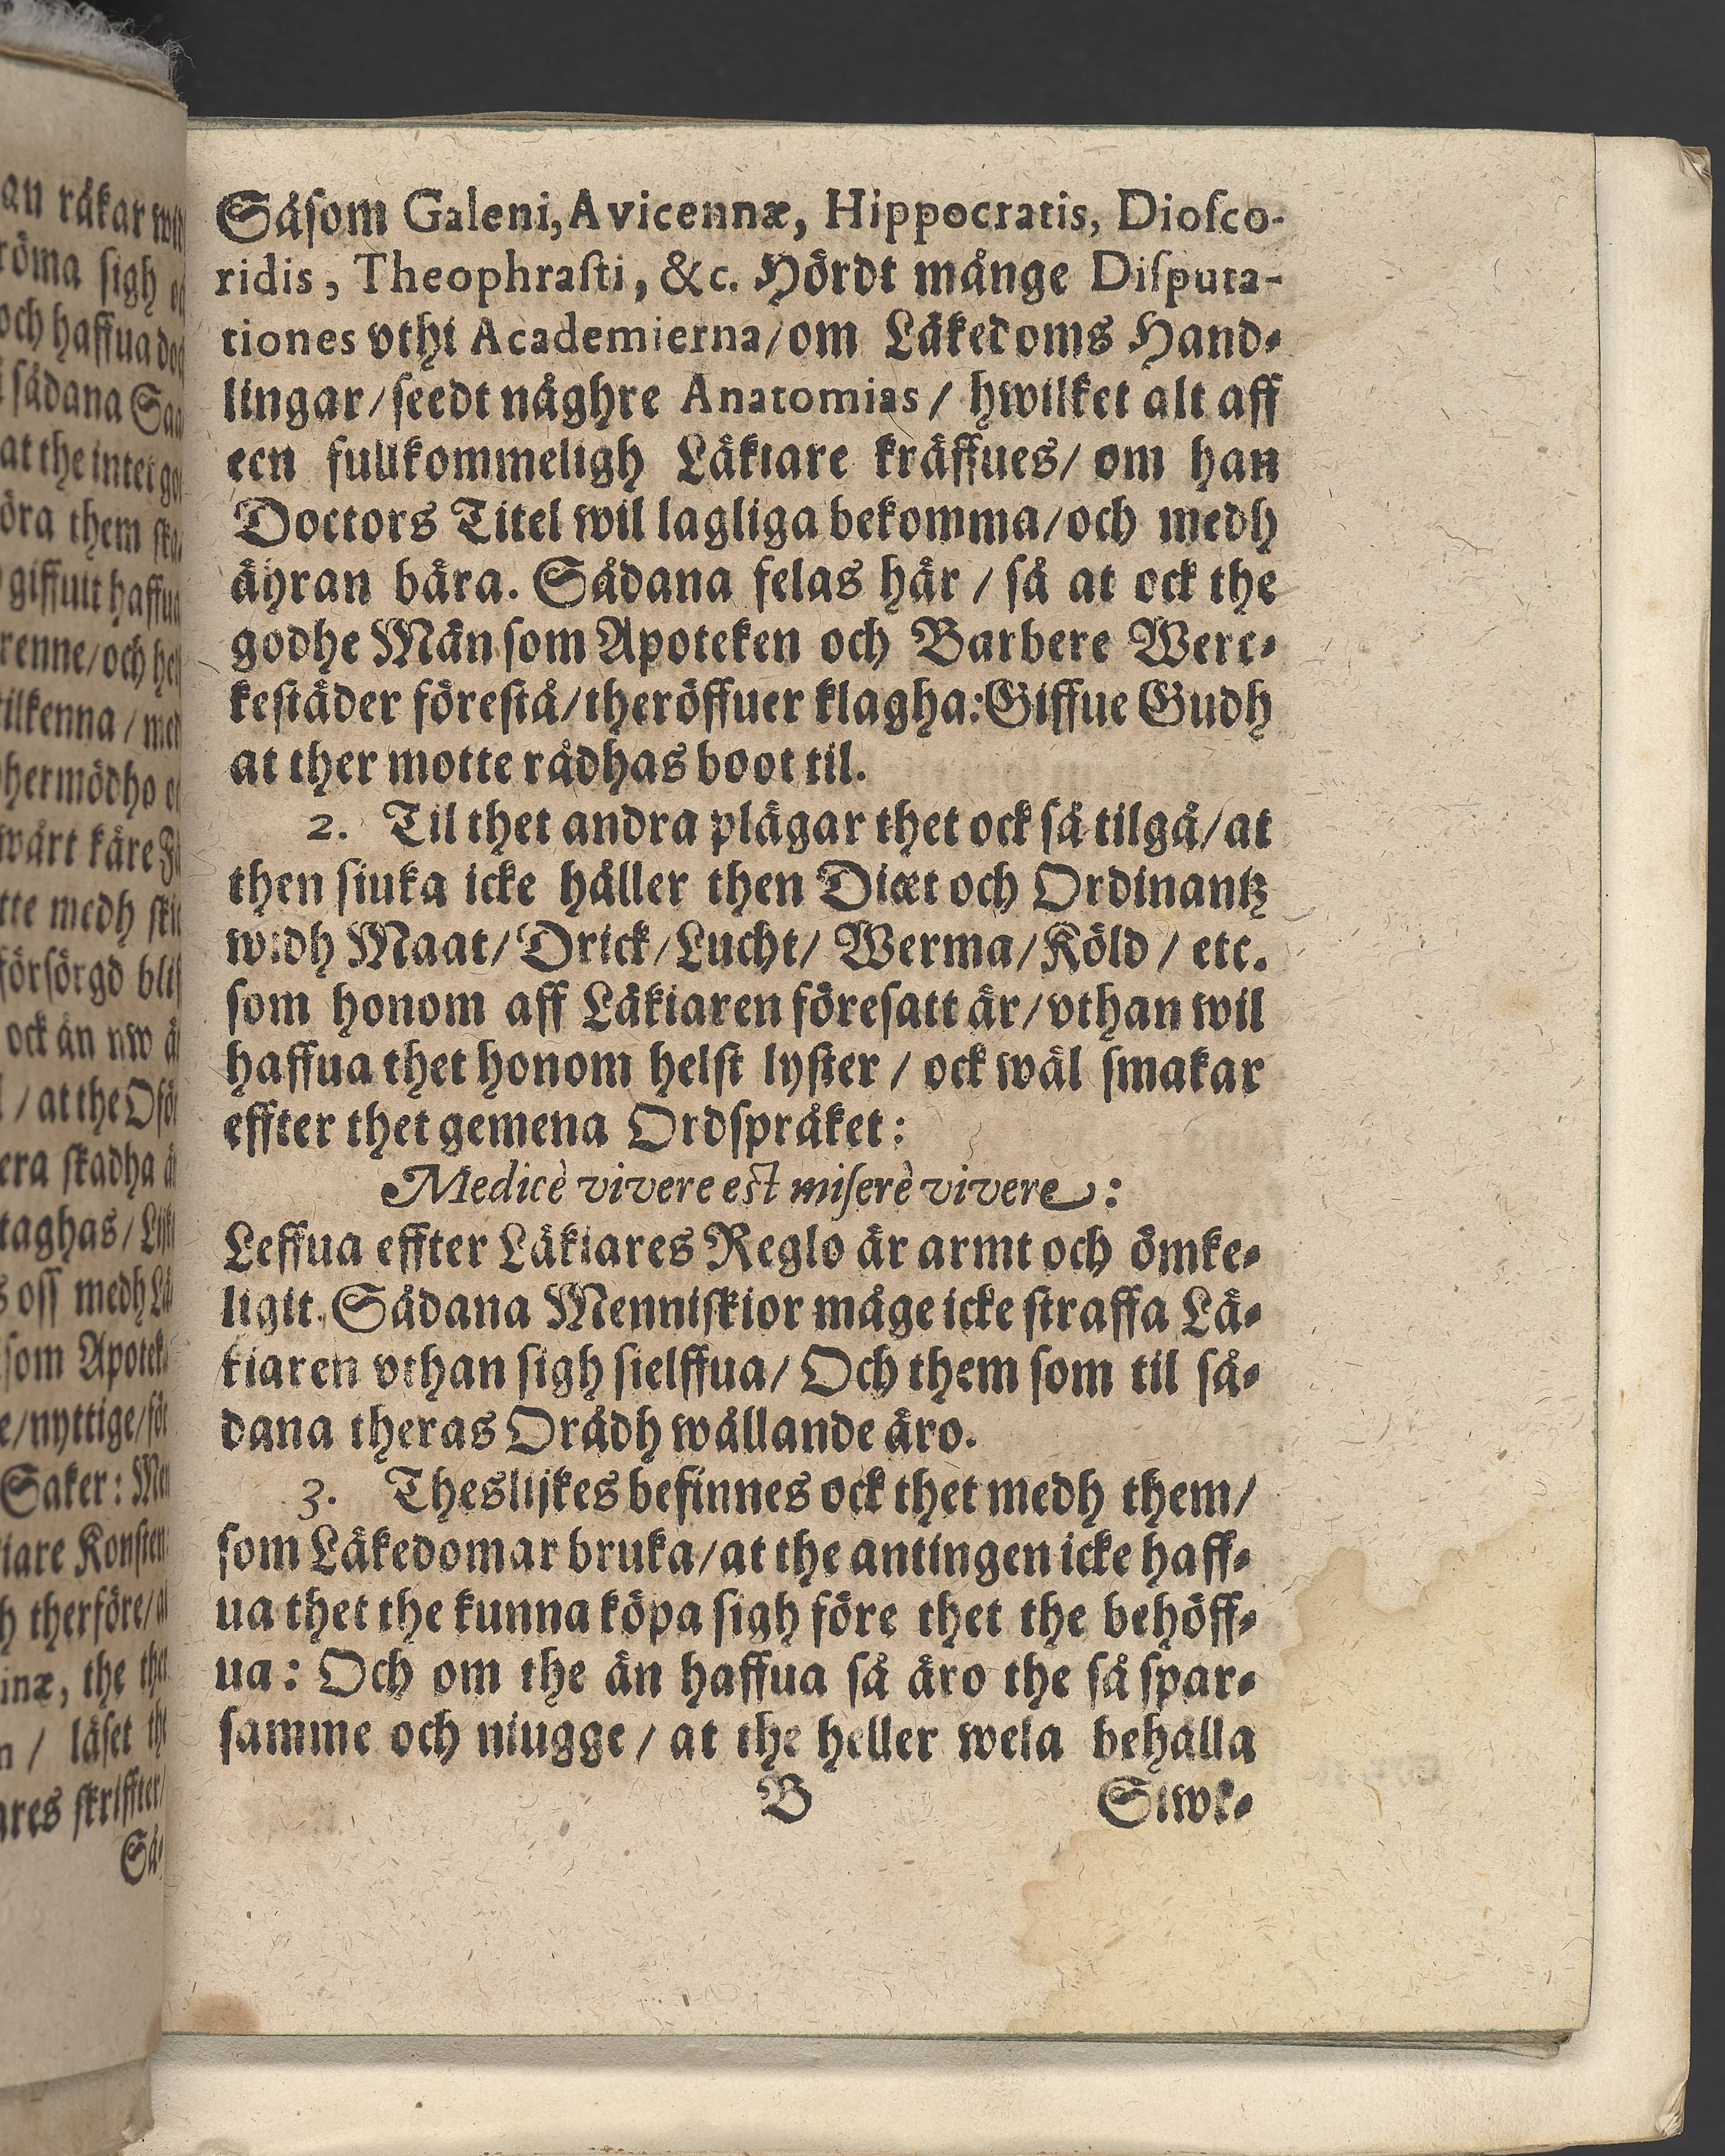 Såſom Galeni, Avicennæ, Hippocratis, Dioſco-
ridis, Theophraſti, &c. Hördt månge Diſputa-
tiones vthi Academierna/om Läkedoms Hand-
lingar/ſeedt någhre Anatomias/ hwilket alt aff
een fullkommeligh Läkiare kräffues/ om han
Doctors Titel wil lagliga bekomma/och medh
ähran bära. Sådana felas här / ſå at ock the
godhe Män ſom Apoteken och Barbere Werc-
keſtäder föreſtå/theröffuer klagha:Giffue Gudh
at ther motte rådhas boot til.
2. Til thet andra plägar thet ock ſå tilgå/at
then ſiuka icke håller then Diæt och Ordinantz
widh Maat/Drick/Lucht/ Werma/Köld/ etc.
ſom honom aff Läkiaren föreſatt är/vthan wil
haffua thet honom helſt lyſter / ock wäl ſmakar
effter thet gemena Ordſpråket:
Medicè vivere est miſerè vivere:
Leffua effter Läkiares Reglo är armt och ömke-
ligit. Sådana Menniſkior måge icke ſtraffa Lä-
kiaren vthan ſigh ſielffua/ Och them ſom til så-
dana theras Orådh wållande äro.
3. Theslijkes befinnes ock thet medh them/
ſom Läkedomar bruka/at the antingen icke haff-
ua thet the kunna köpa ſigh före thet the behöff-
ua: Och om the än haffua ſå äro the ſå ſpar-
ſamme och niugge/ at the heller wela behålla
B Stwf-